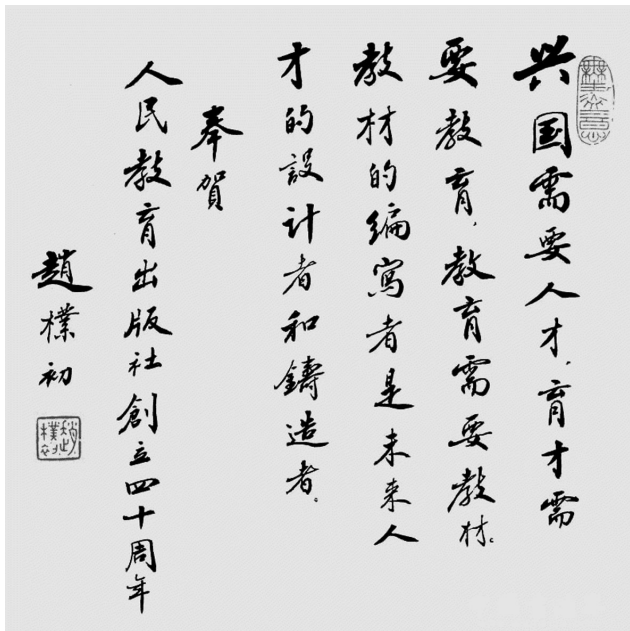 兴国需要人才，育才需
要教育，教育需要教材。
教材的编寫者是未来人
才的設计者和鑄造者。
奉賀
人民教育出版社創立四十周年
趙樸初